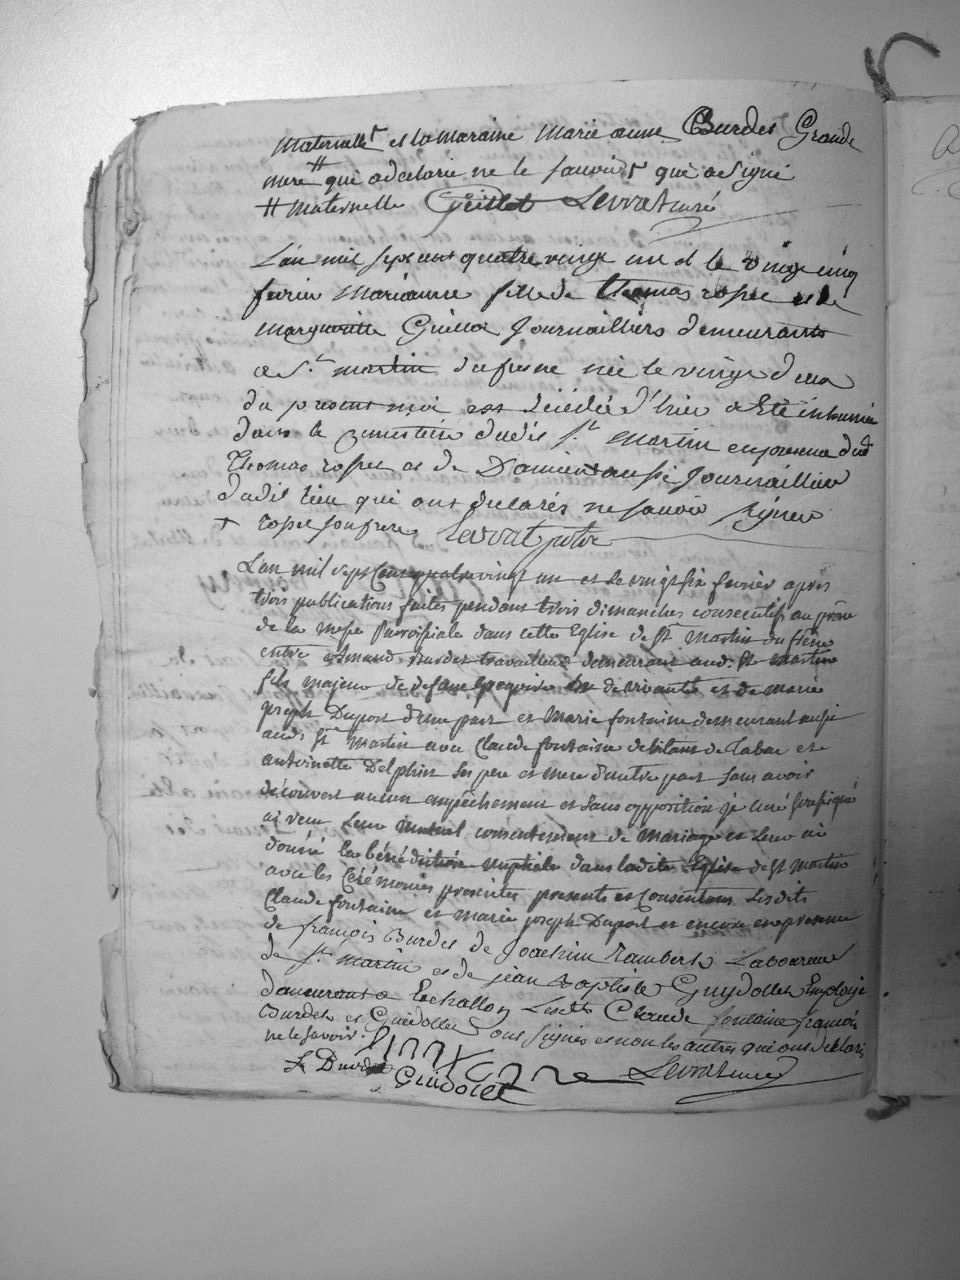 maternelle et la maraine marie anne Burdet Grande
mere # qui a declaré ne le savoir qui a signé
# maternelle Guillet Levrat curé
L'an mil sept cent quatre vingt un et le vingt cinq
fevrier marianne fille de thomas rosset et de
marguerite journailliers demeurants
a St martin du fresne née le vingt deux
du present moi est decédée d'hier a Eté inhumée
dans le cimetière dudit St martin en presence dud
Thomas rosset et de Damien aussi journaillier
dudit lieu qui ont declarés ne savoir signer
+ rosset son frere Levrat
L'an mil sept Cent quatre vingt un et le vingt six fevrier après
trois publications faites pendant trois dimanches consecutifs au prône
de la messe Parroissiale dans cette Eglise de St Martin du frêne
entre Amand Burdet travailleur demeurant aud. St Martin
fils majeur de de vivant et de marie
joseph Dupont d'une part et Marie fontaine demeurant aussi
aud. St Martin avec Claude fontaine debitant de Tabac et
antoinette Delphin ses pere et mere d'autre part sans avoir
découvert aucun empêchement et sans opposition je curé soussigné
ai reçu leur mutuel consentement de mariage et leur ai
donné la bénédiction nuptiale dans ladite Eglise de St Martin
avec les Cérémonies prescrites presents et Consentans lesdits
Claude fontaine et marie joseph Dupont et encore en presence
de françois Burdet de Joachim Lambert Laboureur
de St. Martin et de jean Baptiste Guydollet Employé
demeurant a Echallon Lesdits Claude fontaine françois
Burdet et Guidollet ont signés et non les autres qui ont déclaré
ne le savoir.
f. Burdet Guidolet Levrat curé